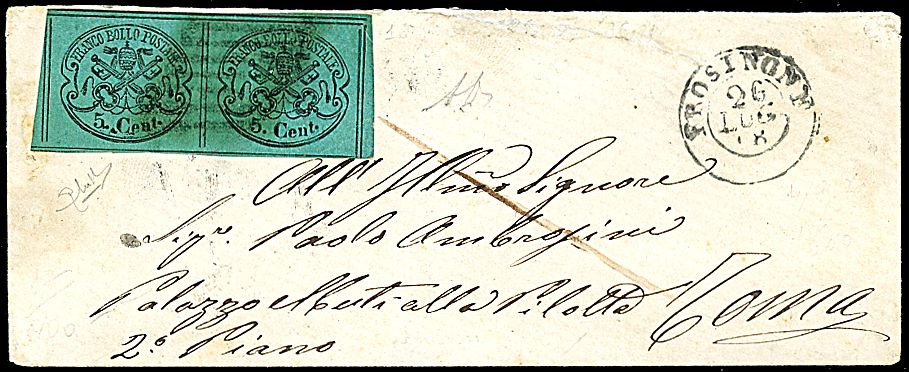 FRANCO BOLLO POSTALE
5. Cent.
FRANCO BOLLO POSTALE
5. Cent.
FROSINONE
26
LUG
68
All' Illmo Signore
Sigr. Paolo Ambrosini
Palazzo Muti alla Pilotta Roma
2º Piano